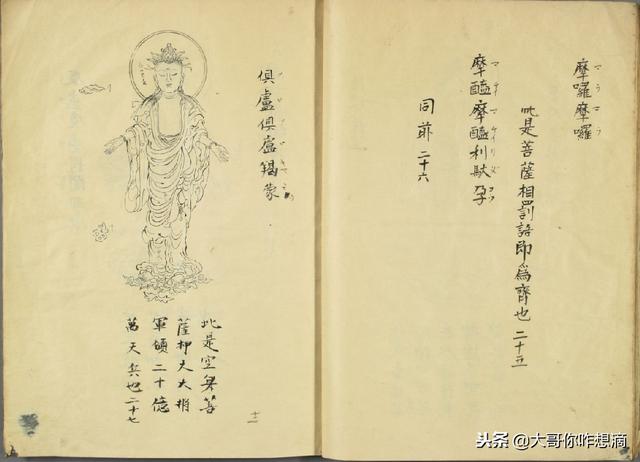 摩囉摩囉
此是菩薩相罰語即為齊也 二十五
摩醯摩醯利馱孕
同前 二十六
俱盧俱盧羯蒙
此是空身菩
薩押天大將
軍領二十億
萬天兵也二十七
头条 @大哥你咋想滴